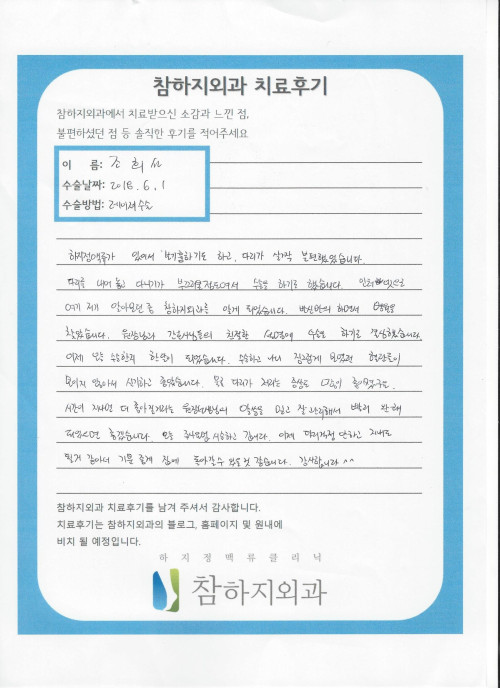 참하지외과 치료후기
참하지외과에서 치료받으신 소감과 느낀 점,
불편하셨던 점 등 솔직한 후기를 적어주세요
이 름: 조희선
수술날짜: 2018.6.1
수술방법: 레이저수술
하지정맥류가 있어서 불편하기도 하고, 다리가 살짝 불편했었습니다.
다리를 내어 놓고 다니기가 부끄러울정도여서 수술을 하기로 했습니다. 인터넷으로
여기 저기 알아보던 중 참하지외과를 알게 되었습니다. 반신반의 하면서 병원을
찾았습니다. 원장님과 간호사님들의 친절한 설명에 수술도 하기로 결심했습니다.
이제 오늘 수술한지 한달이 되었습니다. 수술하고 나니 징그럽게 보였던 혈관들이
보이지 않아서 신기하고 좋았습니다. 또 다리가 저리는 증상도 많이 좋아졌구요.
시간이 지나면 더 좋아질거라는 원장선생님의 말씀을 믿고 잘 관리해서 빨리 완쾌
되었으면 좋겠습니다. 오늘 하고 갑니다. 이제 다리걱정 안하고 지내도
될거 같아서 기분 좋게 집에 돌아갈수 있을것 같습니다. 감사합니다 ^^
참하지외과 치료후기를 남겨 주셔서 감사합니다.
치료후기는 참하지외과의 블로그, 홈페이지 및 원내에
비치 될 예정입니다.
하지정맥류클리닉
참하지외과